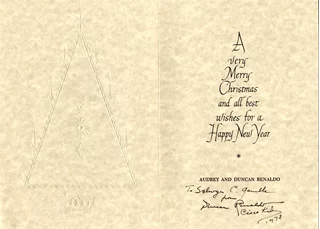 A
very
Merry
Christmas
and all best
wishes for a
Happy New Year
AUDREY AND DUNCAN RENALDO
To C. Gamble
from
Duncan Renaldo
Cisco Kid
1978